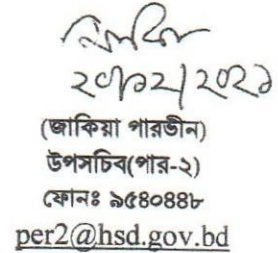 ২০/১২/২০২১
(জাকিয়া পারভীন)
উপসচিব(পার-২)
ফোনঃ ৯৫৪০৪৪৮
per2@hsd.gov.bd